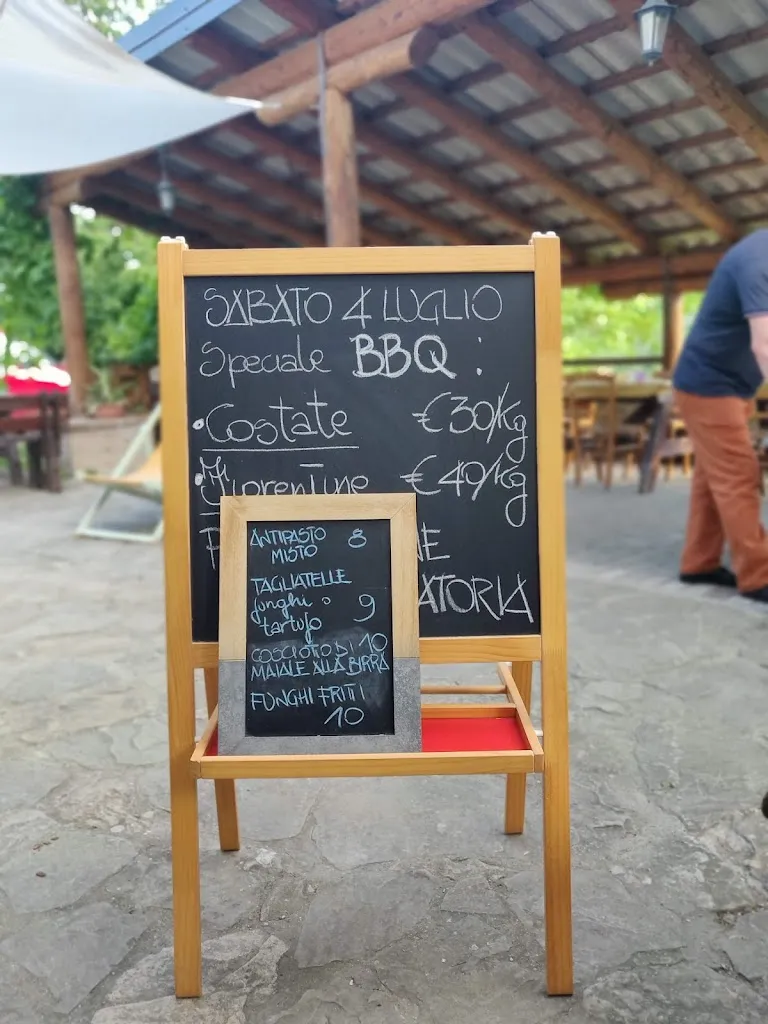 SABATO 4 LUGLIO
Speciale BBQ :
• Costate €30/Kg
• Fiorentine €49/Kg
ANTIPASTO 8
MISTO
TAGLIATELLE
funghi o 9
tartufo
COSCIOTO DI 10
MAIALE ALLA BIRRA
FUNGHI FRITTI
10